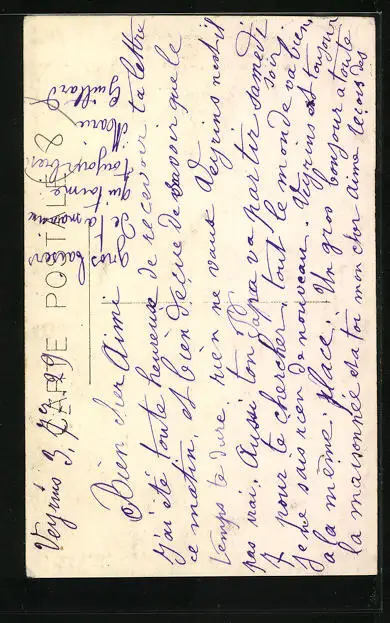 Veyrins 3, 29
CARTE POSTALE
Bien cher Aimé
J'ai été toute heureuse de recevoir ta lettre
ce matin, et bien déçue de savoir que le
temps te dure, rien ne vaut Veyrins n'est il
pas vrai. Aussi ton papa va partir samedi soir
pour te chercher, tout le monde va bien,
je ne sais rien de nouveau. Veyrins est toujours
a la même place. Un gros bonjour a toute
la maisonnée et a toi mon cher Aimé reçois des
gros baisers
de ta maman
qui t'aime
toujours bien
Marie
Guillard